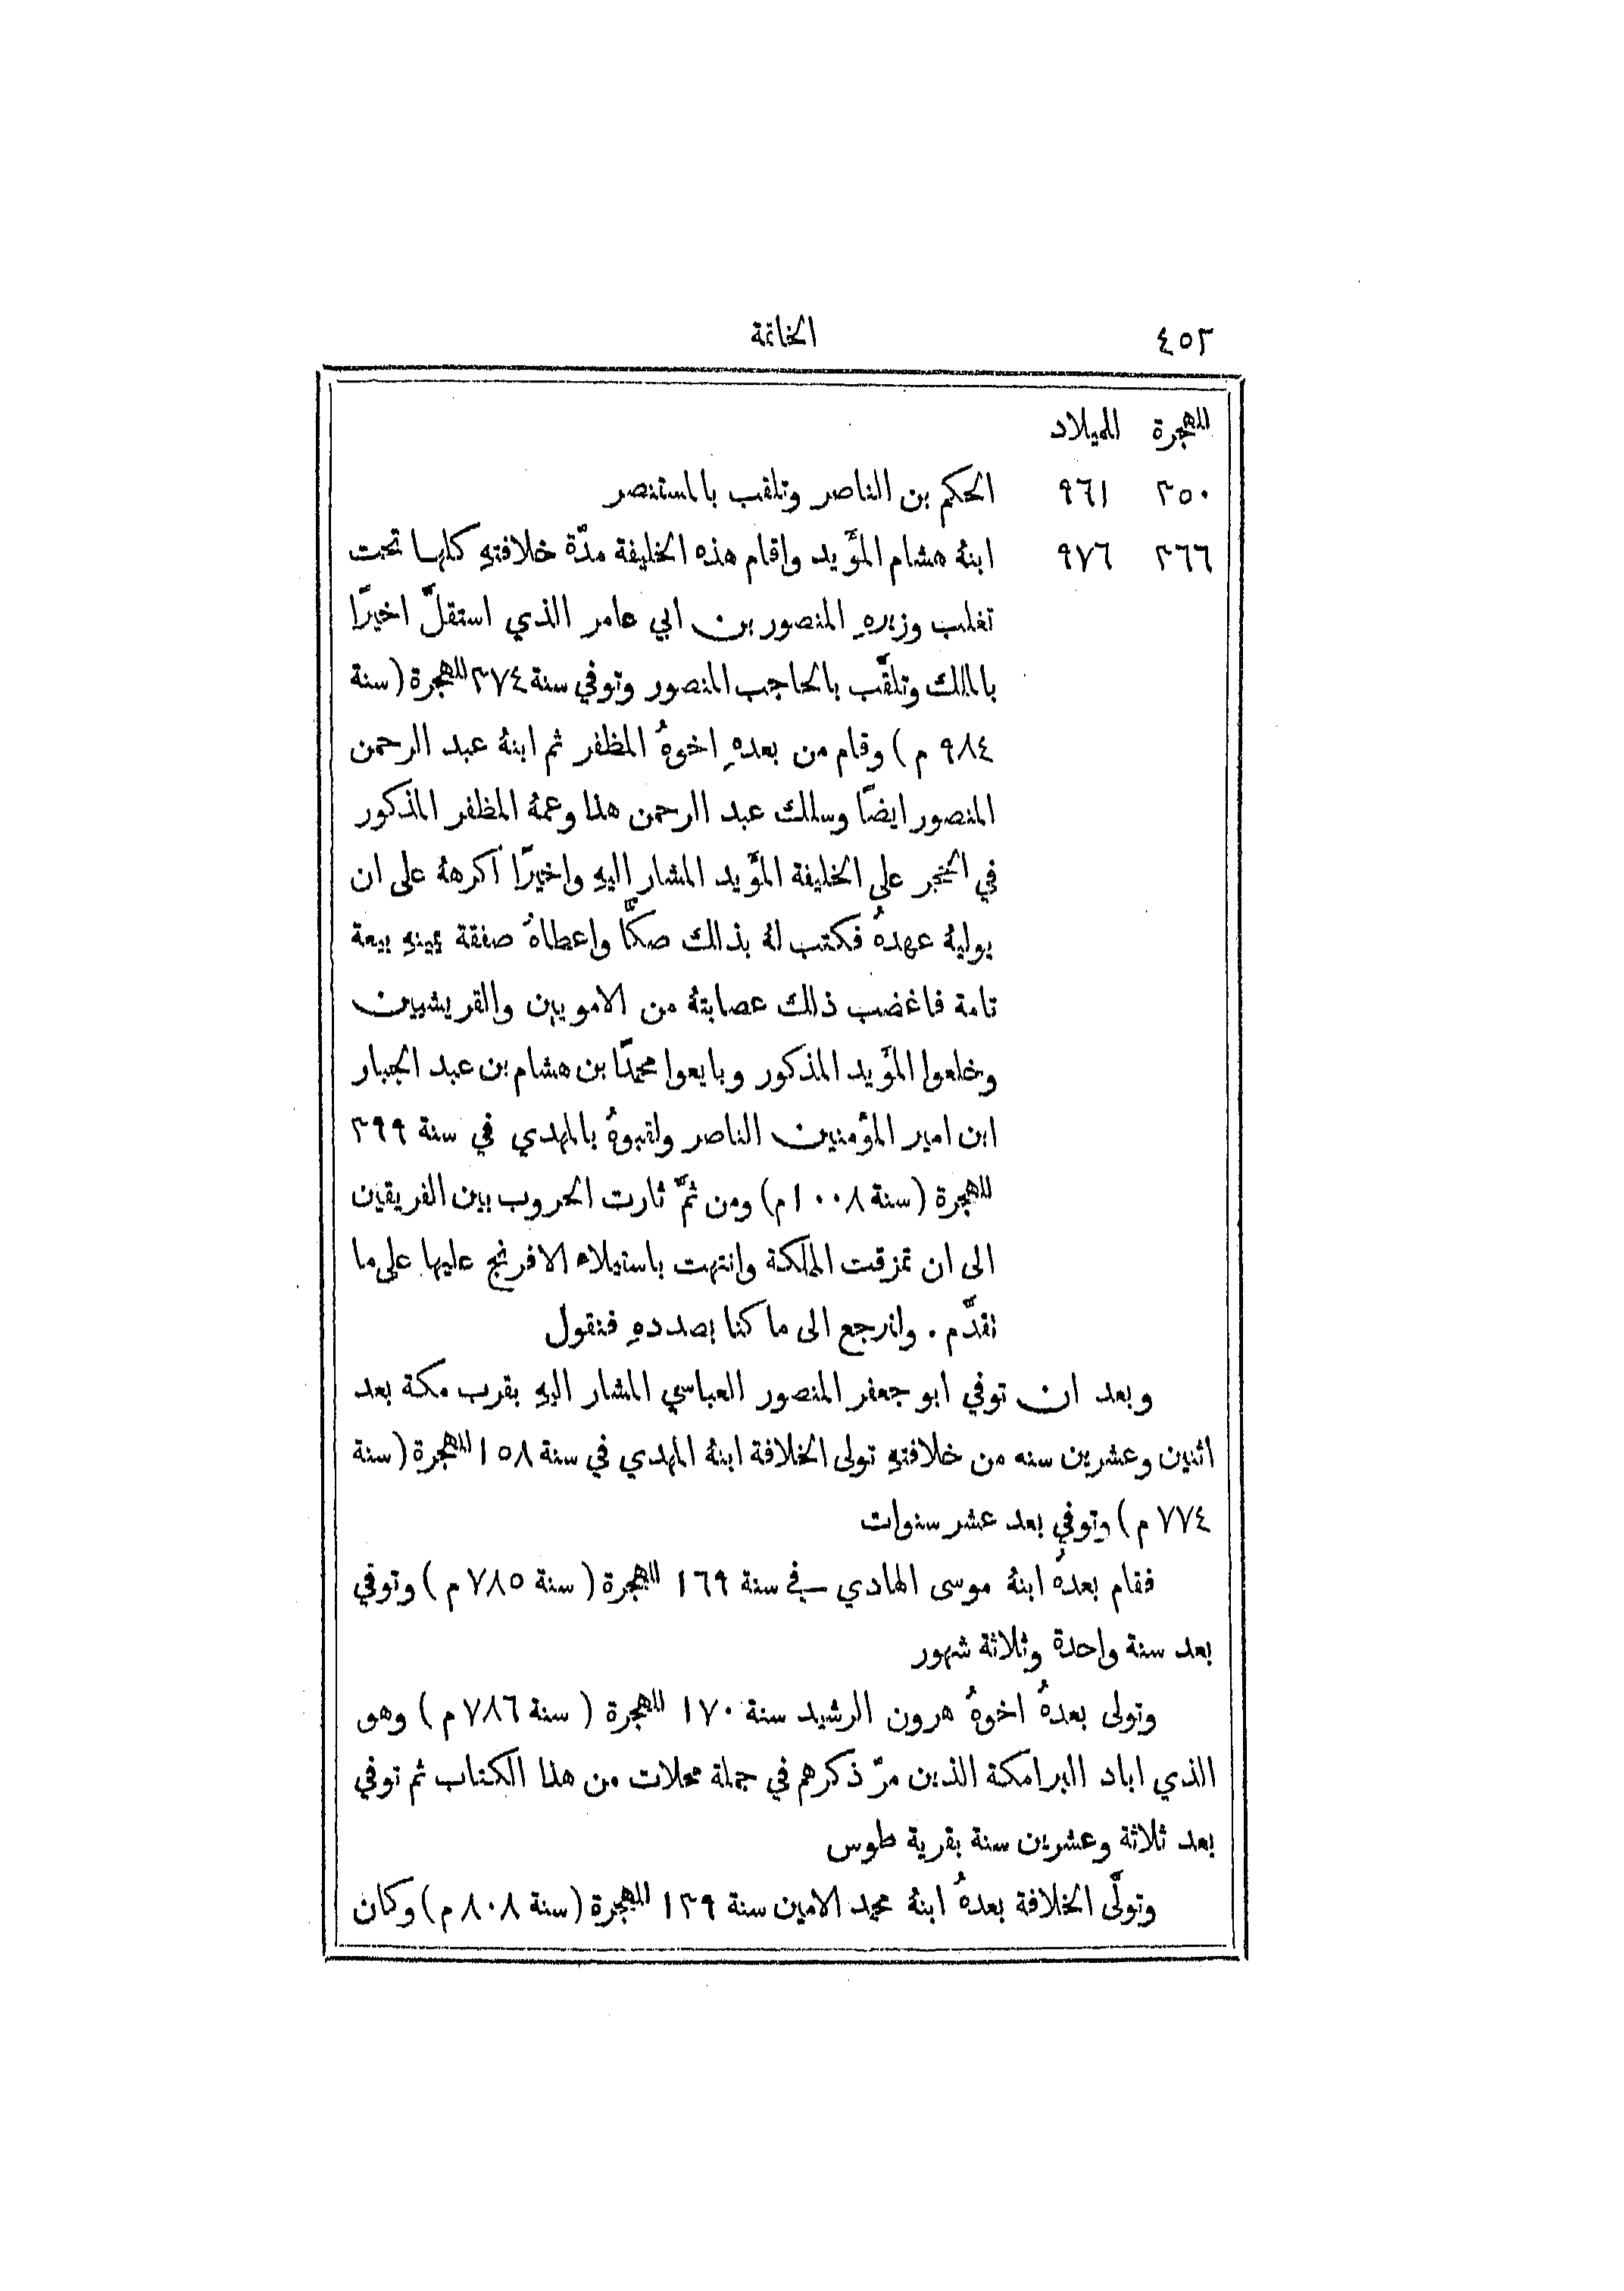 ٤٥٢ الخاتمة
للهجرة للميلاد
٣٥٠ ٩٦١ الحكم بن الناصر وتلقب بالمستنصر
٣٦٦ ٩٧٦ ابنهُ هشام المؤَّيد واقام هذه الخليفة مدّة خلافتهِ كلها تحت
تغلب وزيرهِ المنصور بن ابي عامر الذي استقلَّ اخيرًا
بالملك وتلقَّب بالحاجب المنصور وتوفي سنة ٣٧٤ للهجرة (سنة
٩٨٤ م) وقام من بعدهِ اخوهُ المظفر ثم ابنهُ عبد الرحمن
المنصور ايضًا وسلك عبد الرحمن هذا وعمهُ المظفر المذكور
في الحجر على الخليفة المؤَّيد المشار اليهِ واخيرًا اكرههُ على ان
يوليهُ عهدهُ فكتب لهُ بذلك صكًّا واعطاهُ صفقة يمينهِ بيعة
تامة فاغضب ذلك عصابتهُ من الامويين والقريشيين
وخلعوا المؤَيد المذكور وبايعوا محمدًا بن هشام بن عبد الجبار
ابن امير المؤْمنين الناصر ولقبوهُ بالمهدي في سنة ٣٩٩
للهجرة (سنة ١٠٠٨م) ومن ثمَّ ثارت الحروب بين الفريقين
الى ان تمزقت المملكة وانتهت باستيلاء الافرنج عليها على ما
تقدَّم . ولنرجع الى ما كنا بصددهِ فنقول
وبعد ان توفي ابو جعفر المنصور العباسي المشار اليهِ بقرب مكة بعد
اثنين وعشرين سنه من خلافتهِ تولى الخلافة ابنهُ المهدي في سنة ١٥٨ للهجرة (سنة
٧٧٤ م) وتوفي بعد عشر سنوات
فقام بعدهُ ابنهُ موسى الهادي في سنة ١٦٩ للهجرة (سنة ٧٨٥ م) وتوفي
بعد سنة واحدة وثلاثة شهور
وتولى بعدهُ اخوهُ هرون الرشيد سنة ١٧٠ للهجرة (سنة ٧٨٦ م) وهو
الذي اباد البرامكة الذين مرّ ذكرهم في جملة محلات من هذا الكتاب ثم توفي
بعد ثلاثة وعشرين سنة بقرية طوس
وتولَّى الخلافة بعدهُ ابنهُ محمد الامين سنة ١٣٩ للهجرة (سنة ٨٠٨ م) وكان